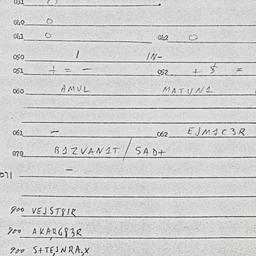 031 0
040 0
041 0 042 0
050 1 IN-
051 + = - 052 + $ =
060 AMUL MATUN1
061 - 062 EJM1C3R
070 B1ZVAN1T/SAD+
071 -
900 VEJST81R
900 AKARG83R
900 S+TEJNRA,X